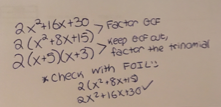 2x²+16x+30 > Factor GCF
2(x²+8x+15) > Keep GCF out,
2(x+5)(x+3) factor the trinomial
*Check with FOIL:
2(x²+8x+15)
2x²+16x+30✓